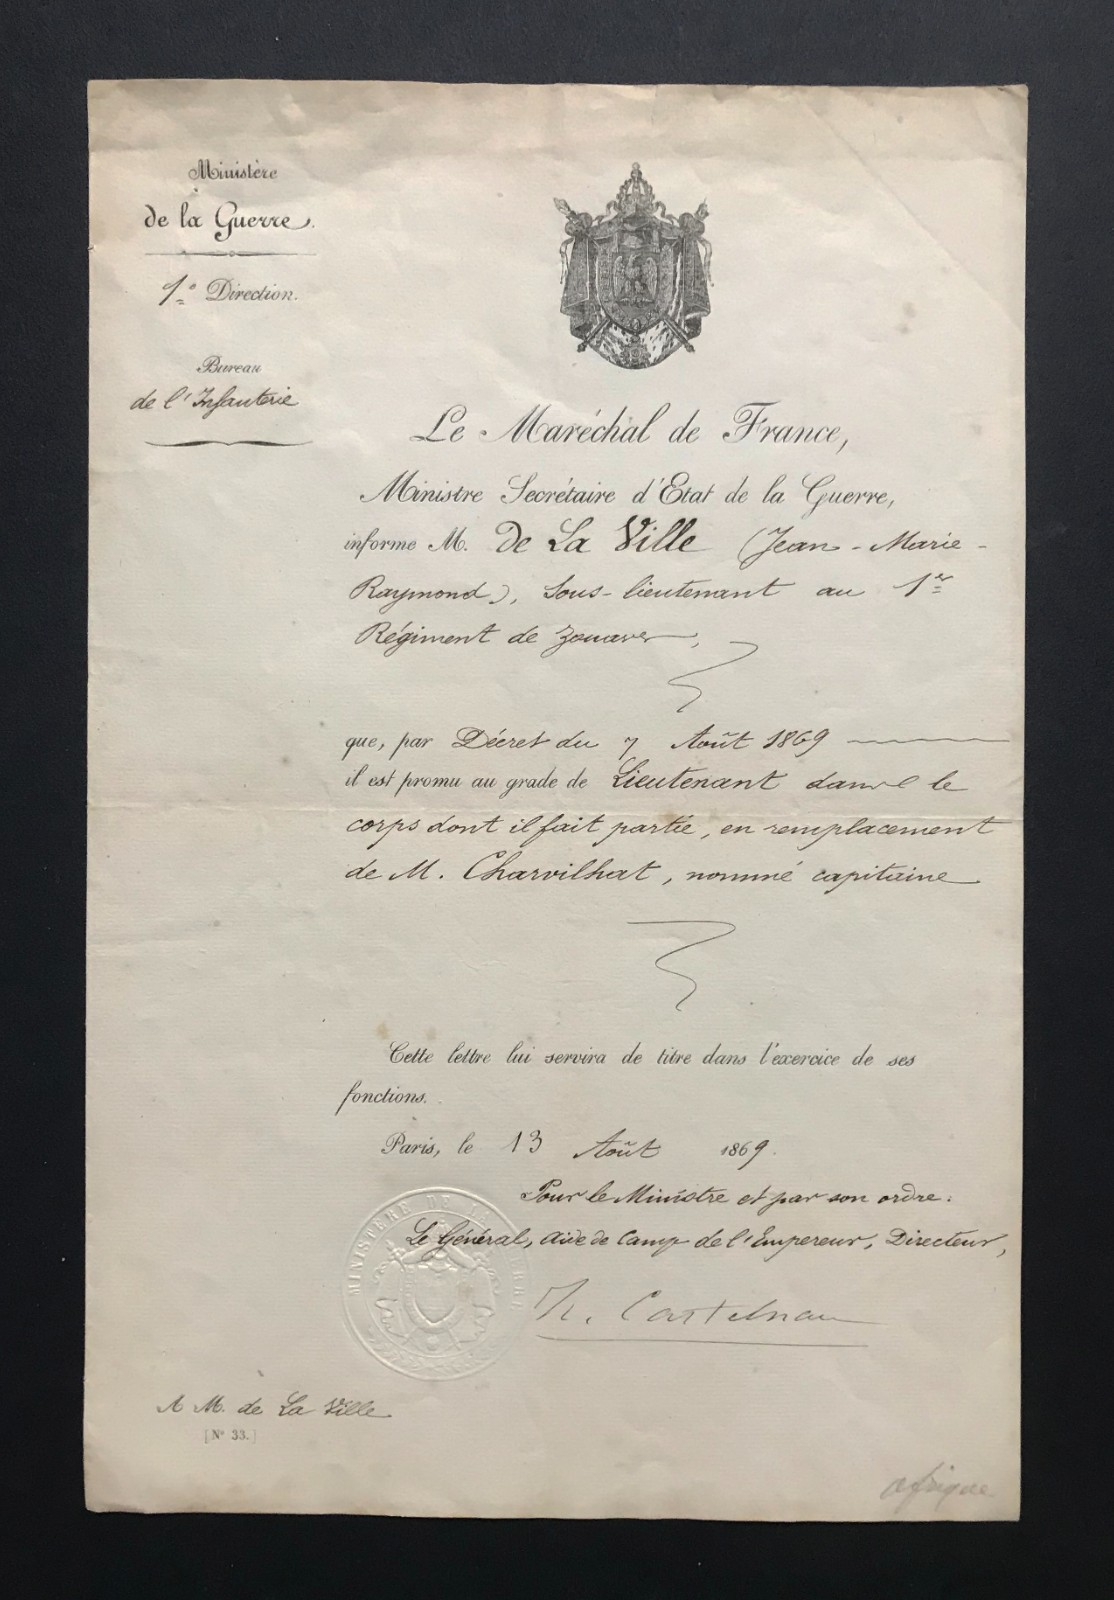 Ministère
de la Guerre.
1e Direction.
Bureau
de l'Infanterie
Le Maréchal de France,
Ministre Secrétaire d'Etat de la Guerre,
informe M. de La Ville (Jean-Marie-
Raymond), Sous-lieutenant au 1er
Régiment de Zouaves,
que, par Décret du 7 Août 1869
il est promu au grade de Lieutenant dans le
corps dont il fait partie, en remplacement
de M. Charvilhat, nommé capitaine
Cette lettre lui servira de titre dans l'exercice de ses
fonctions.
Paris, le 13 Août 1869.
Pour le Ministre et par son ordre.
Le Général, aide de Camp de l'Empereur, Directeur,
MINISTÈRE DE LA GUERRE
Castelnau
A M. de La Ville
[N° 33.]
afrique